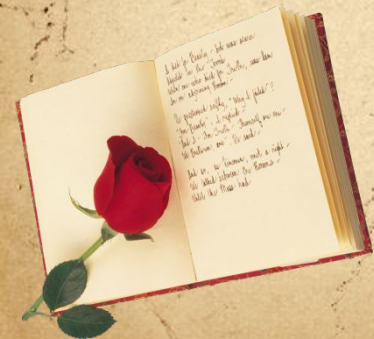 I died for Beauty – but was scarce
Adjusted in the Tomb
When one who died for Truth, was lain
In an adjoining Room –
He questioned softly, "Why I failed"?
"For Beauty", I replied –
"And I – for Truth – Themself are One –
We Bretheren, are", He said –
And so, as Kinsmen, met a Night –
We talked between the Rooms –
Until the Moss had